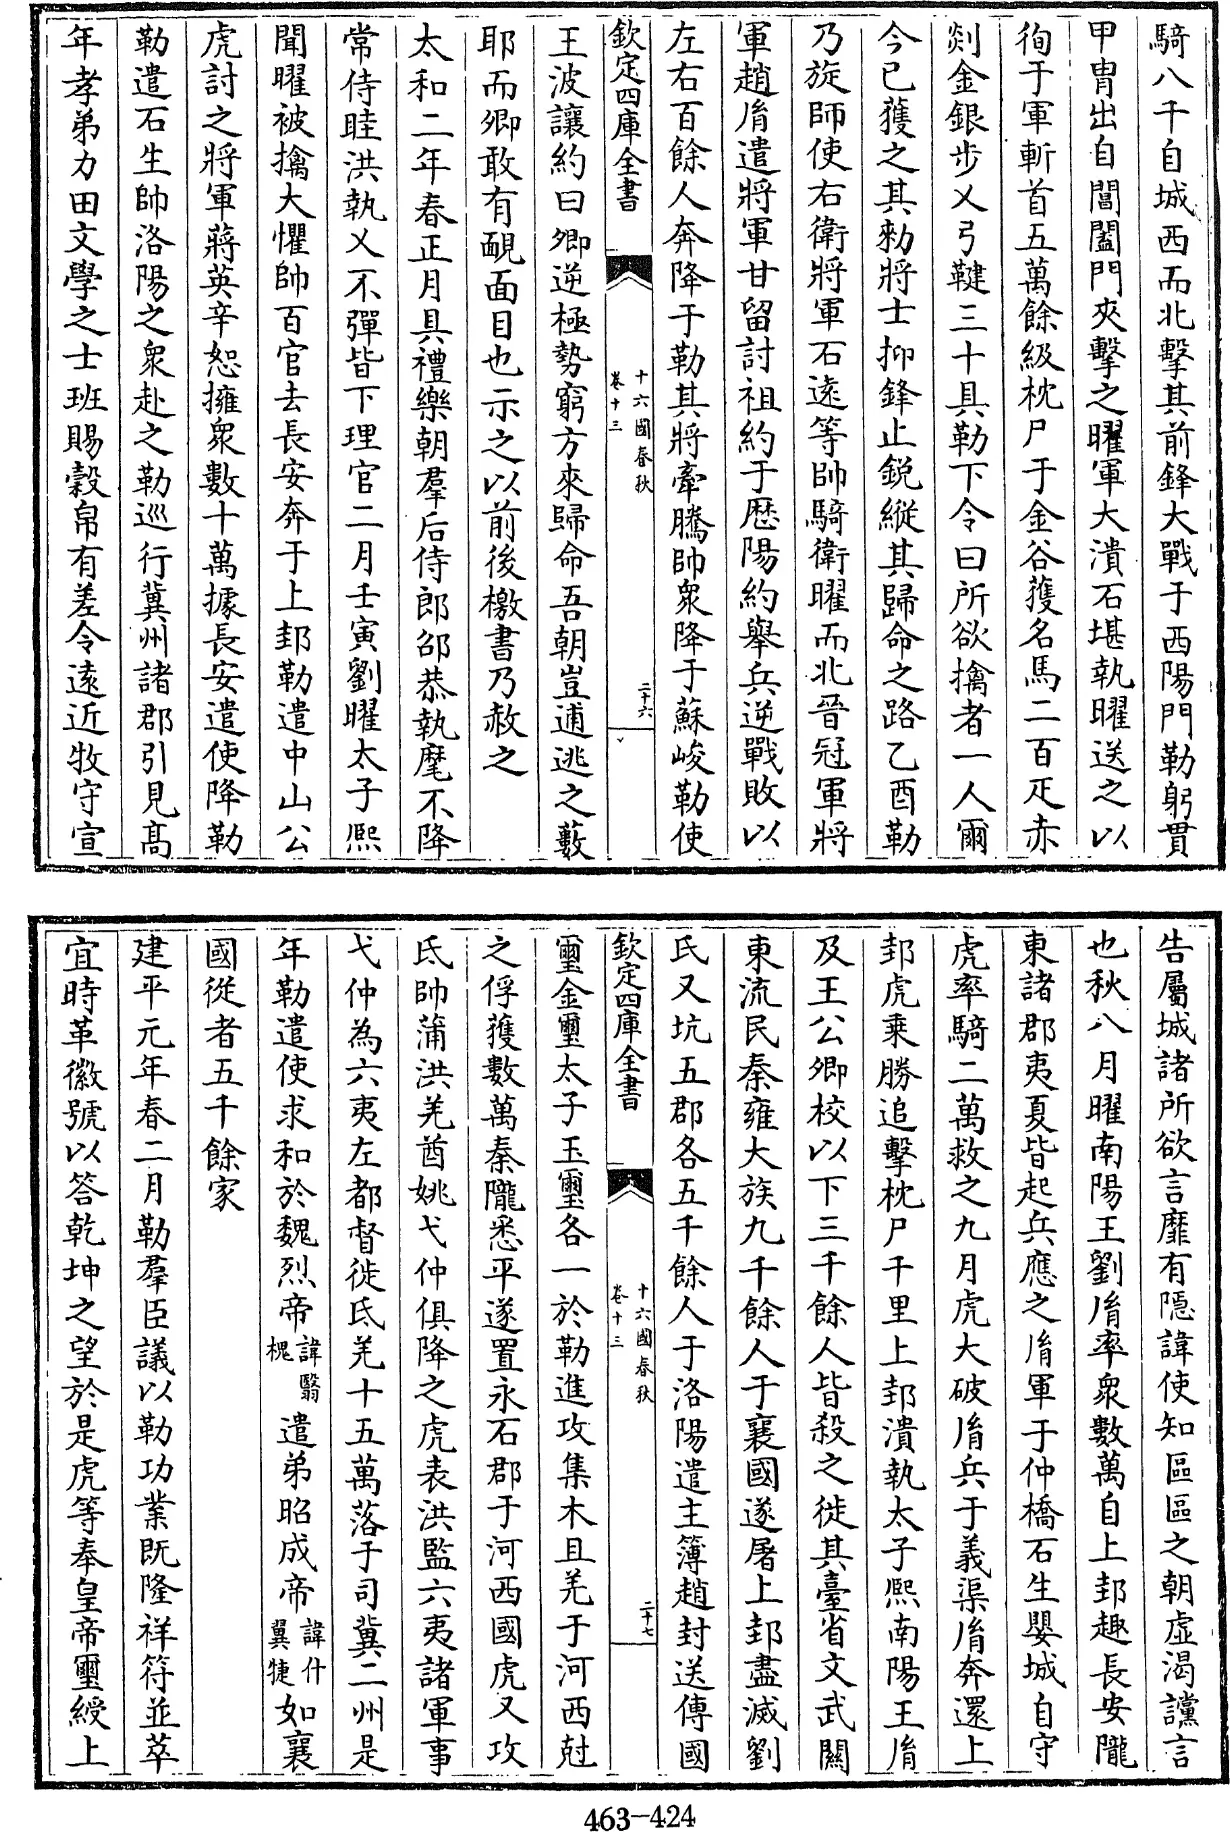 騎八千自城西而北擊其前鋒大戰于西陽門勒躬貫
甲冑出自閶闔門夾擊之曜軍大潰石堪執曜送之以
徇于軍斬首五萬餘級枕尸于金谷獲名馬二百疋赤
剡金銀步乂弓鞬三十具勒下令曰所欲擒者一人爾
今已獲之其勑將士抑鋒止鋭縱其歸命之路乙酉勒
乃旋師使右衛將軍石逺等帥騎衛曜而北晉冠軍將
軍趙𦙍遣將軍甘留討祖約于厯陽約舉兵逆戰敗以
左右百餘人奔降于勒其將牽騰帥衆降于蘇峻勒使
欽定四庫全書
十六國春秋
卷十三
二十六
王波讓約曰卿逆極勢窮方來歸命吾朝豈逋逃之藪
耶而卿敢有靦面目也示之以前後檄書乃赦之
太和二年春正月具禮樂朝羣后侍郎邵恭執麾不降
常侍眭洪執乂不彈皆下理官二月壬寅劉曜太子熙
聞曜被擒大懼帥百官去長安奔于上邽勒遣中山公
虎討之將軍蔣英辛恕擁衆數十萬據長安遣使降勒
勒遣石生帥洛陽之衆赴之勒巡行冀州諸郡引見髙
年孝弟力田文學之士班賜穀帛有差令逺近牧守宣
告屬城諸所欲言靡有隱諱使知區區之朝虛渴讜言
也秋八月曜南陽王劉𦙍率衆數萬自上邽趣長安隴
東諸郡夷夏皆起兵應之𦙍軍于仲橋石生嬰城自守
虎率騎二萬救之九月虎大破𦙍兵于義渠𦙍奔還上
邽虎乗勝追擊枕尸千里上邽潰執太子熙南陽王𦙍
及王公卿校以下三千餘人皆殺之徙其臺省文武關
東流民秦雍大族九千餘人于襄國遂屠上邽盡滅劉
氏又坑五郡各五千餘人于洛陽遣主簿趙封送傳國
欽定四庫全書
十六國春秋
卷十三
二十七
璽金璽太子玉璽各一於勒進攻集木且羌于河西尅
之俘獲數萬秦隴悉平遂置永石郡于河西國虎又攻
氐帥蒲洪羌酋姚弋仲俱降之虎表洪監六夷諸軍事
弋仲為六夷左都督徙氐羌十五萬落于司冀二州是
年勒遣使求和於魏烈帝諱翳槐遣弟昭成帝諱什翼犍如襄
國從者五千餘家
建平元年春二月勒羣臣議以勒功業既隆祥符並萃
宜時革徽號以答乾坤之望於是虎等奉皇帝璽綬上
463-424